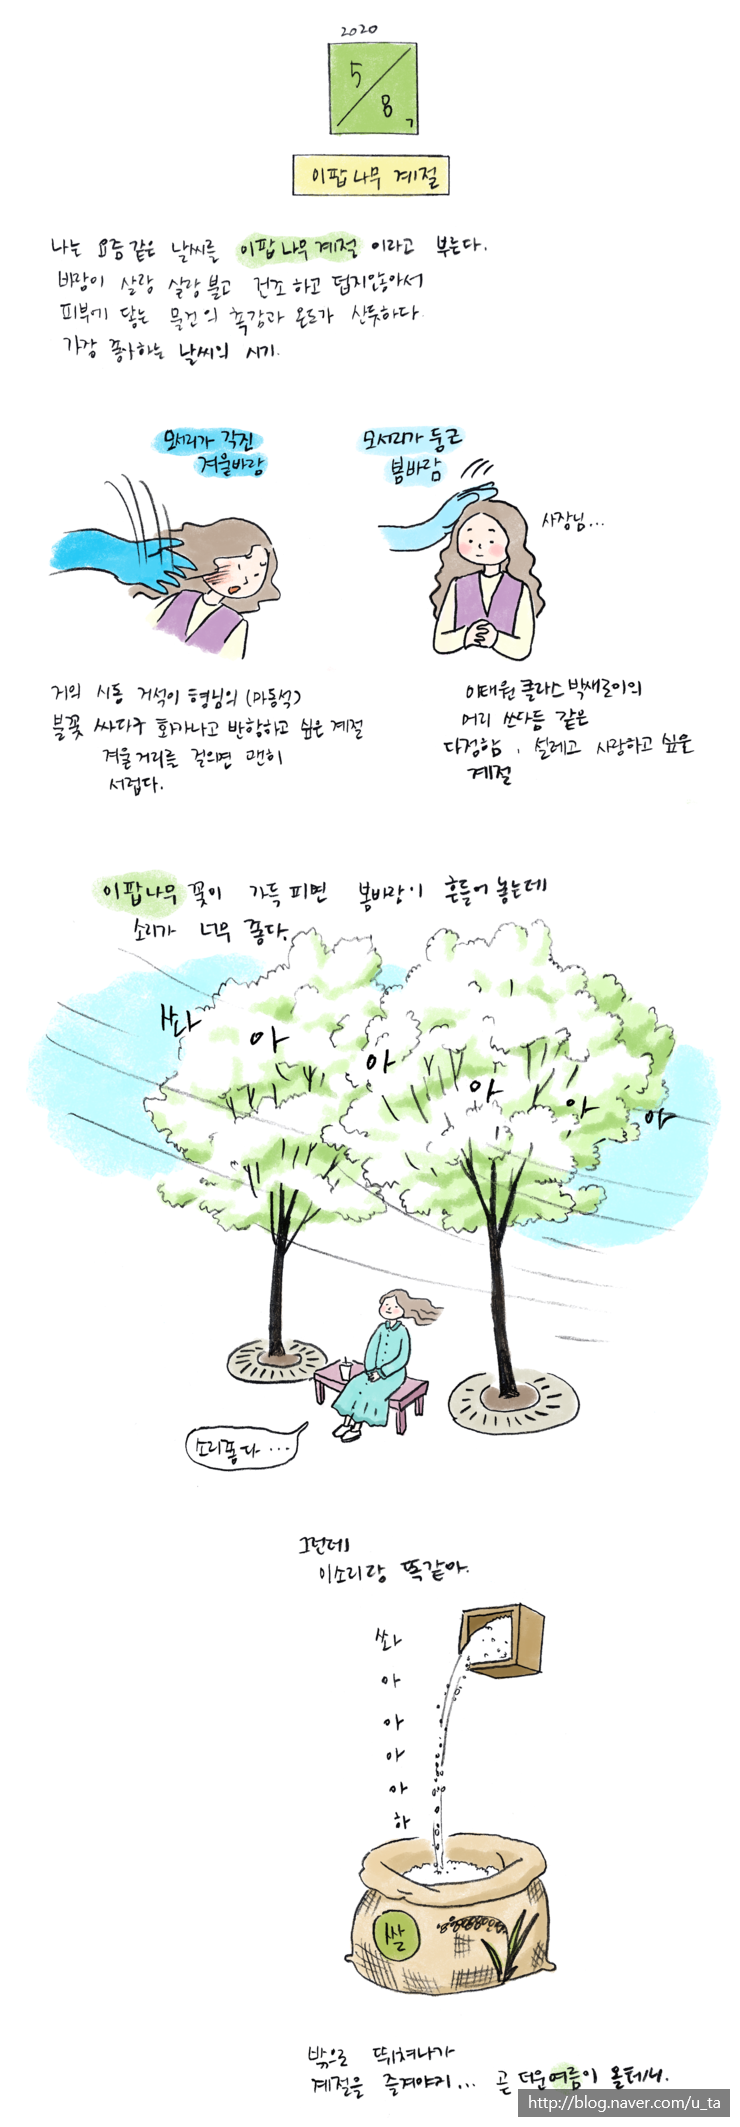 2020
5/8
7
이팝나무 계절
나는 요즘같은 날씨를 이팝나무계절 이라고 부른다.
바람이 살랑 살랑불고 건조하고 덥지않아서
피부에 닿는 물건의 촉감과 온도가 산뜻하다.
가장 좋아하는 날씨의 시기.
모서리가 각진
겨울바람
모서리가 둥근
봄바람
사장님...
거의 시동 거석이 형님의 (마동석)
불꽃 싸다구 화가나고 반항하고 싶은 계절
겨울거리를 걸으면 괜히
서럽다.
이태원클라스 박새로이의
머리 쓰다듬 같은
다정함, 설레고 사랑하고 싶은
계절
이팝나무 꽃이 가득 피면 봄바람이 흔들어 놓는데
소리가 너무 좋다.
쏴
아
아
아
아
아
소리좋다...
그런데
이소리랑 똑같아.
쏴
아
아
아
아
하
쌀
밖으로 뛰쳐나가
계절을 즐겨야지... 곧 더운여름이 올테니.
http://blog.naver.com/u_ta